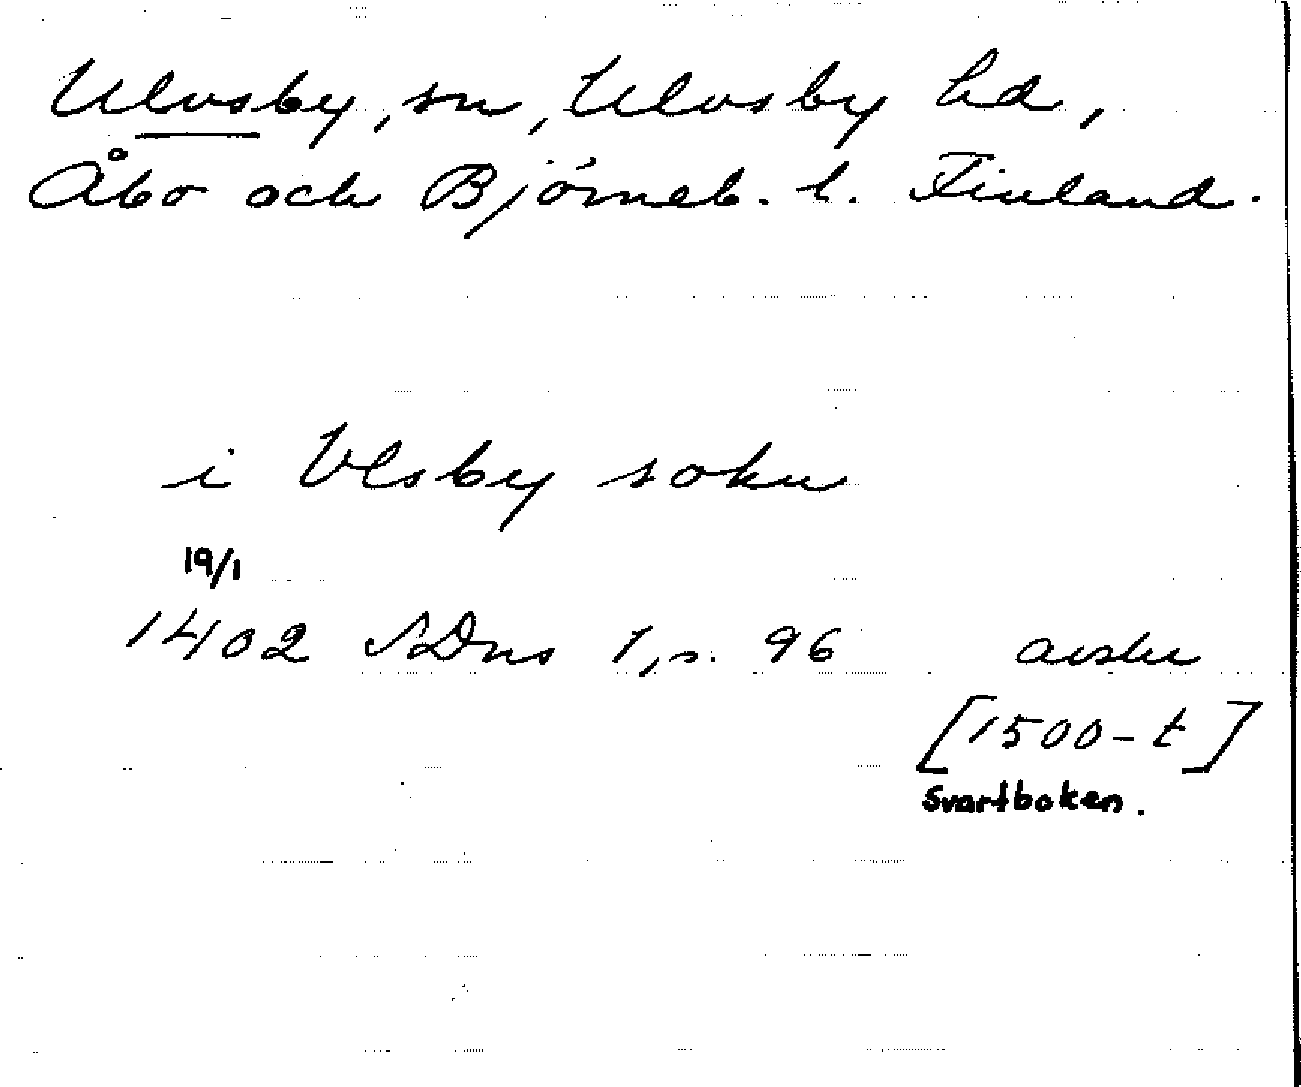 Ulvsby, sn, Ulvsby hd,
Åbo och Björneb. l. Finland.
i Vlsby sokn
19/1
1402 SDns 1, s. 96 avskr
[1500-t]
Svartboken.